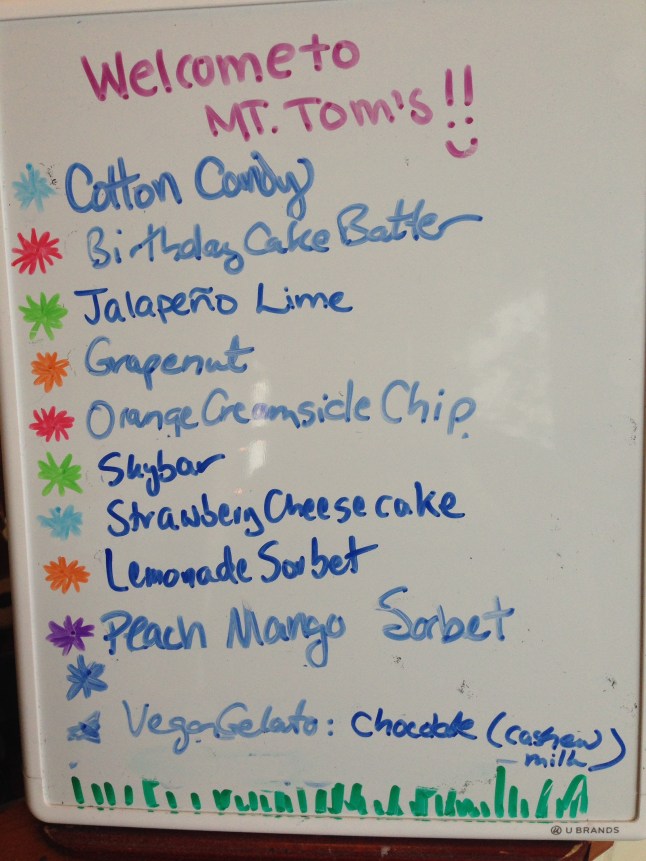 Welcome to
MT. Tom's!!
Cotton Candy
Birthday Cake Batter
Jalapeño Lime
Grapenut
Orange Creamsicle Chip
Skybar
Strawbery Cheesecake
Lemonade Sorbet
Peach Mango Sorbet
Vegan Gelato: chocolate (cashew
milk)
U BRANDS